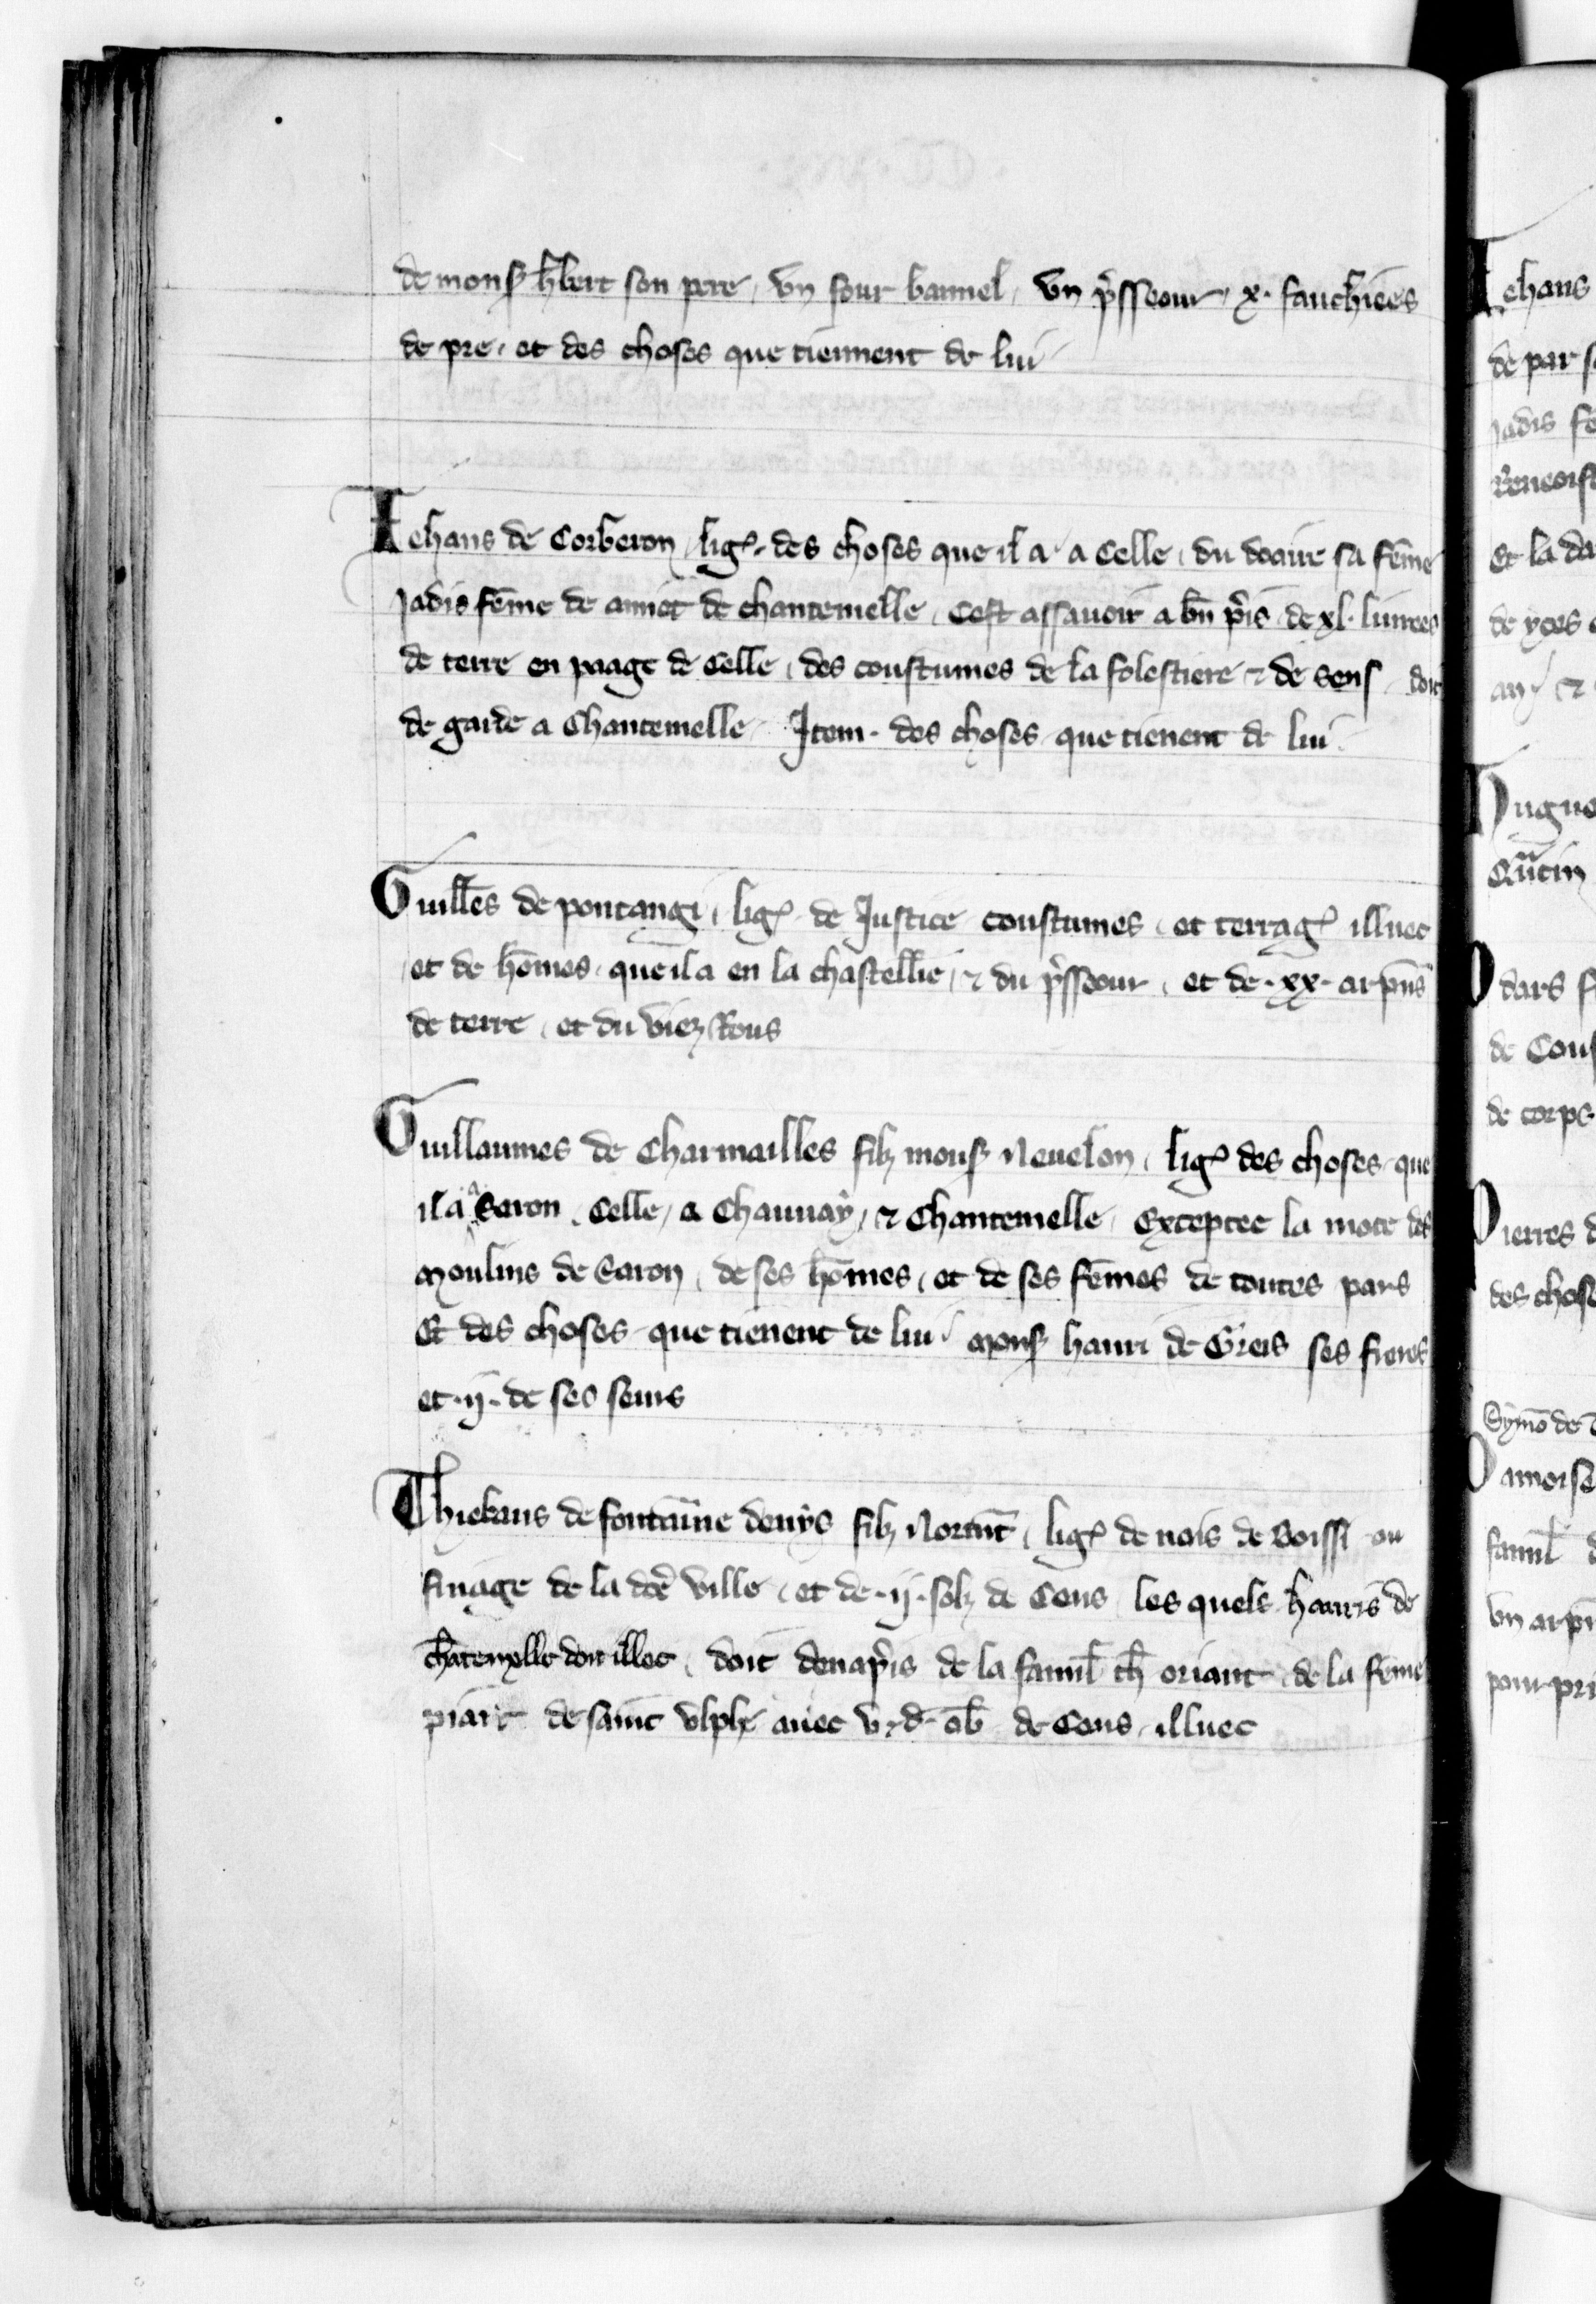 de monsʳ h̄bert son pere, vn four bannel, vn p̄sseour, x. fauchiees
de pre, et des choses que tiennent de lui
Jehans de Corberon, lige, des choses que il a a Celle, du doaire sa fēme
Jadis fēme de de chantemelle, Cest assauoir a bn̄ pris de xl. liurees
de terre en paage de Celle, des coustumes de la folestiere & de Sens, doit
de garde a Chantemelle Item. des choses que tienent de lui
Guill̄es de pontangi, lige de Justice coustumes, et terrage illuec
et de hōmes, que il a en la chastell̄ie, & du p̄sseour, et de .xx. arpēns
de terre, et du viez Rous
Guillaumes de Charmailles filz monsʳ Neuelon, lige des choses que
il a a Saron, Celle, a Chaunay, & Chantemelle, Exceptee la mote des
Moulins de Saron, de ses hōmes, et de ses fēmes de toutes pars
Et des choses que tienent de lui Monsʳ hanri de Greis ses freres
et .ij. de ses seurs
Thiebaus de fontaine denys filz lige de de Boissi ou
finage de la dc̄e ville, et de .ij. solz de Cens les quels hanris de
chātemelle doit illec, doit de la oriant, de la fēme
de saint vlphe auec v. d. ob̄ de Cens illuec
Jehans
de par
Jadis
Et la
de yces
Hugue
Odars
de
de corps
Pierres
des chose
Symō de
Damoise
vn
pour